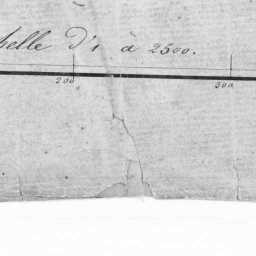 helle d'1 à 2500.
200 300